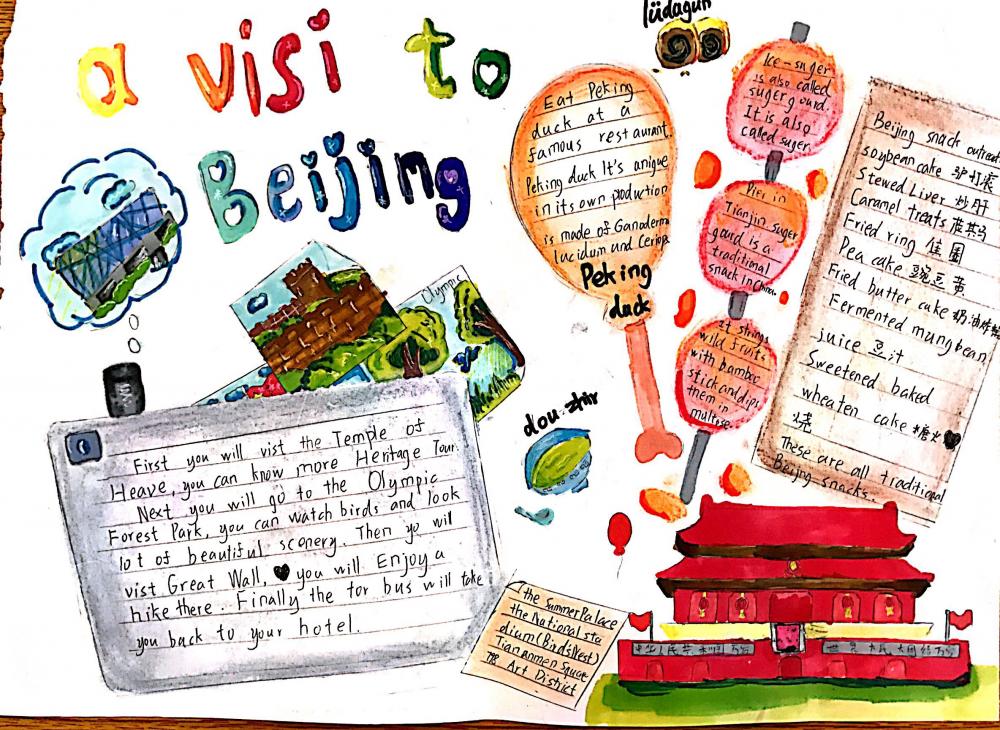 a visi to
Beijing
lüdagun
Eat Peking
duck at a
famous restaurant.
Peking duck It's anique
in its own production
is made of Ganoderma
lucidum und Ceriop
Peking
duck
Ice-suger
is also called
suger gourd.
It is also
called suger.
Pier in
Tianjin. suger
gourd is a
traditional
snack in China.
It strings
wild fruit
with bamboo
stick and dips
them in
maltose.
Beijing snack outread
soybean cake 驴打滚
Stewed Liver 炒肝
Caramel treats
Fried ring 圈
Pea cake 豌豆黄
Fried butter cake 奶油炸糕
Fermented mung bean
juice 豆汁
Sweetened baked
wheaten cake 糖火
烧
These are all traditional
Beijing snacks.
Olympic
dou-zhir
First you will vist the Temple of
Heave, you can know more Heritage Tour.
Next you will go to the Olympic
Forest Park, you can watch birds and look
lot of beautiful sconery. Then yo will
vist Great Wall, you will Enjoy a
hike there. Finally the tor bus will take
you back to your hotel.
(the Summer Palace
the National sta
dium (Bird's Nest)
Tiananmen Square
798 Art District
中华人民共和国万岁
世界人民大团结万岁